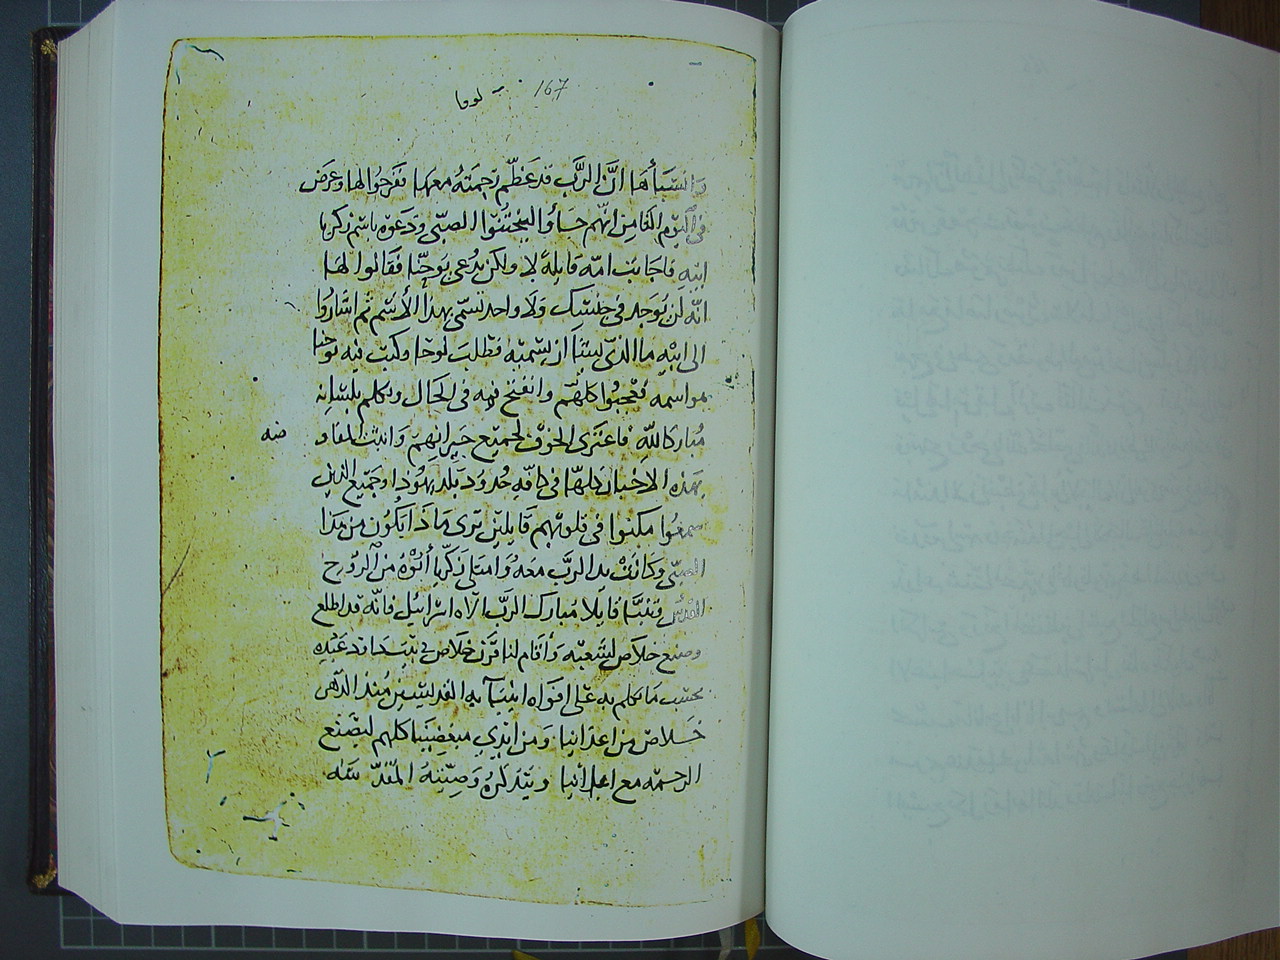 لوقا 167
وانسباأها انّ الربّ قد عظّم رحمته معها ففرحوا لها وعرض
في اليوم الثامن انهم جاؤا ليختنوا الصبيّ ودعوه باسم زكريا
ابيه فاجابت امّه قايلة لا ولكن يدعى يوحنّا فقالوا لها
انّه لن يوجد في جنسك ولا واحد تسمّى بهذا الاسم ثم اشاروا
الى ابيه ما الذي يبتغي ان يسميه فطلب لوحا وكتب فيه يوحنا
هو اسمه فعجبوا كلهم وانفتح فمه في الحال وتكلم بلسانه
مباركا لله فاعترى الخوف لجميع جيرانهم وانبثت المفاو
ضه
بهذه الاخبار كلها في كافه حدود بلد يهوذا وجميع الذين
سمعوا مكنوا في قلوبهم قايلين ترى ماذا يكون من هذا
الصبيّ وكانت يد الربّ معه وامتلى زكريا أبوه من الروح
القدس فتنبّا قايلا مبارك الربّ الاه اسرائيل فانّه قد اطلع
وصنع خلاص لشعبه وأقام لنا قرن خلاص في بيت داود عبده
بحسب ما تكلم به على افواه انبيآيه القديسين منذ الدهر
خلاص من اعدائنا ومن ايدي مبغضينا كلهم ليصنع
الرحمه مع ابائنا ويتذكر وصيّته المقدّسه